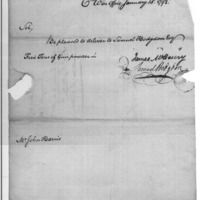 War Office, January 15th 1798.
Sir,
Be pleased to deliver to Samuel Hodgdon Esqr
Tons of Gunpowder
James McHenry
Samuel Hodgdon
Mr John Harris